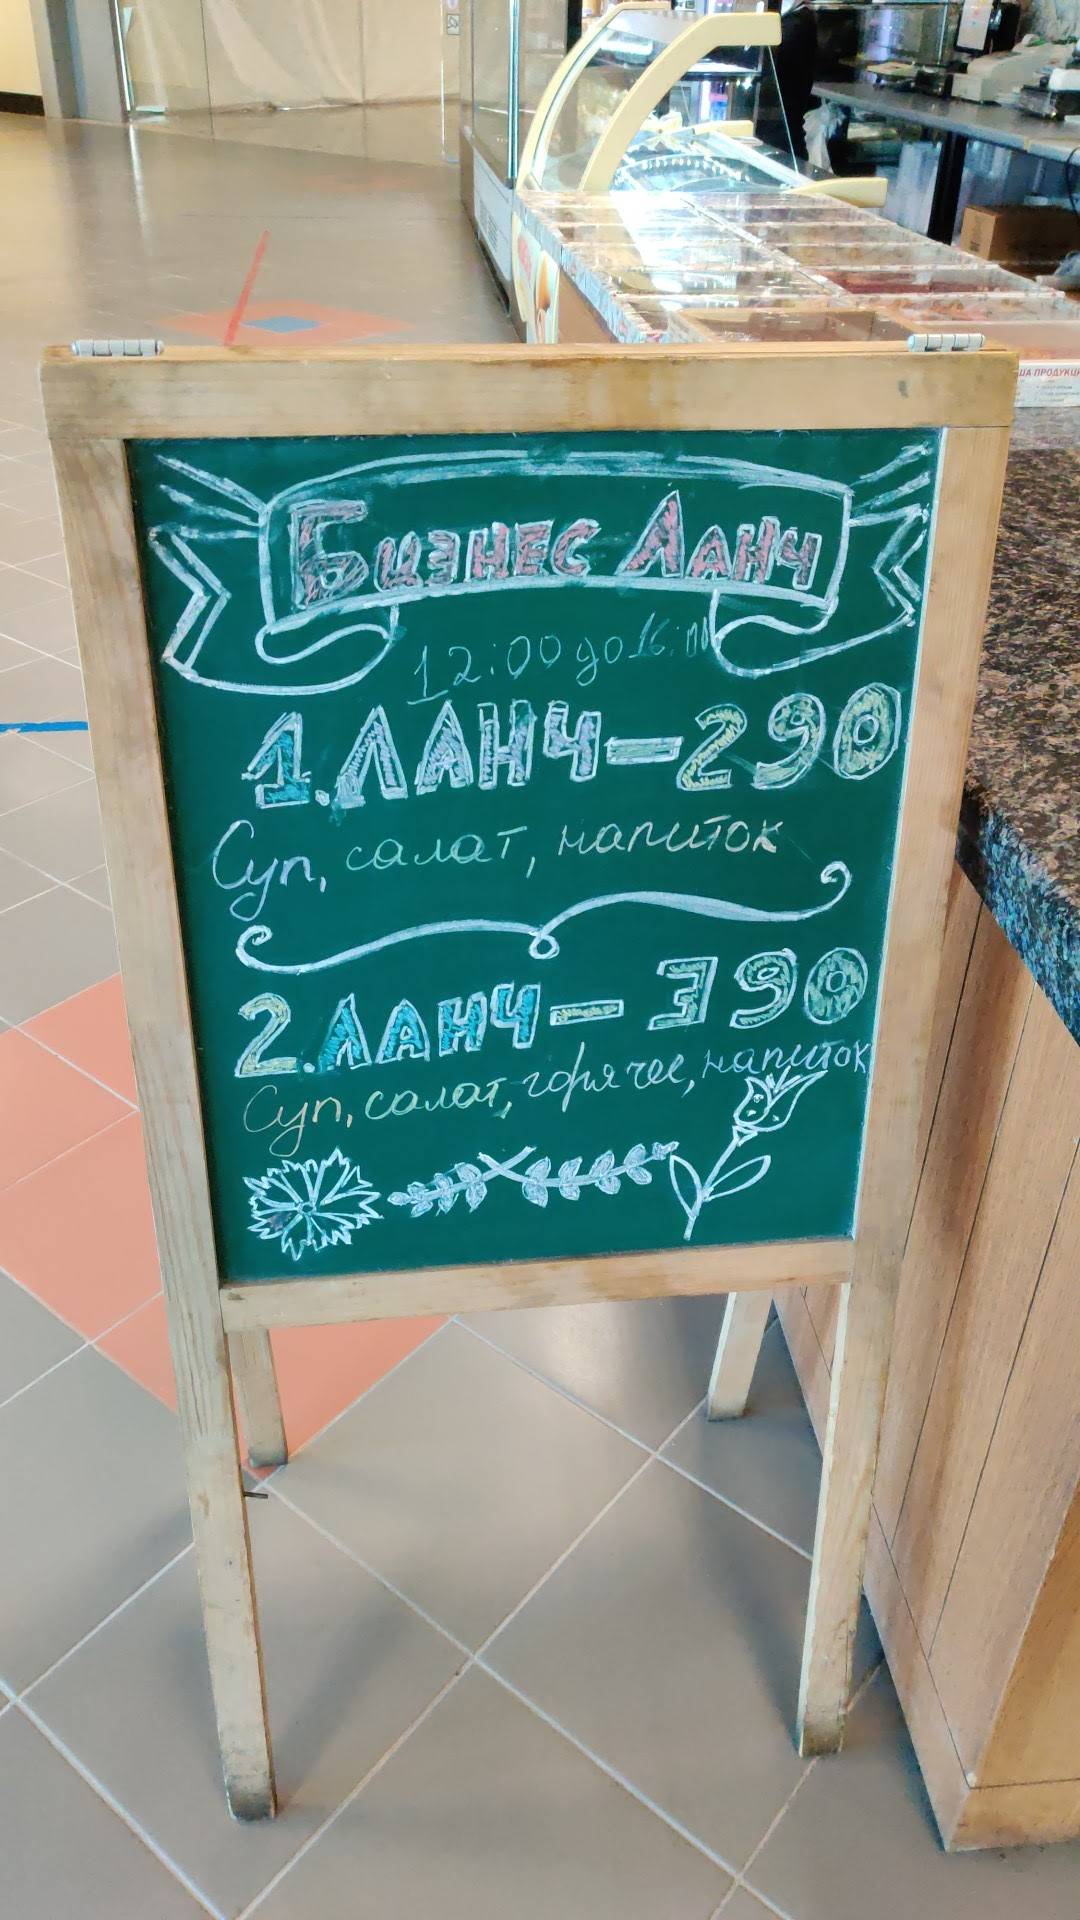 Бизнес Ланч
12:00 до 16:00
1. ЛАНЧ - 290
Суп, салат, напиток
2. ЛАНЧ - 390
Суп, салат, горячее, напиток
ША ПРОДУКЦИ